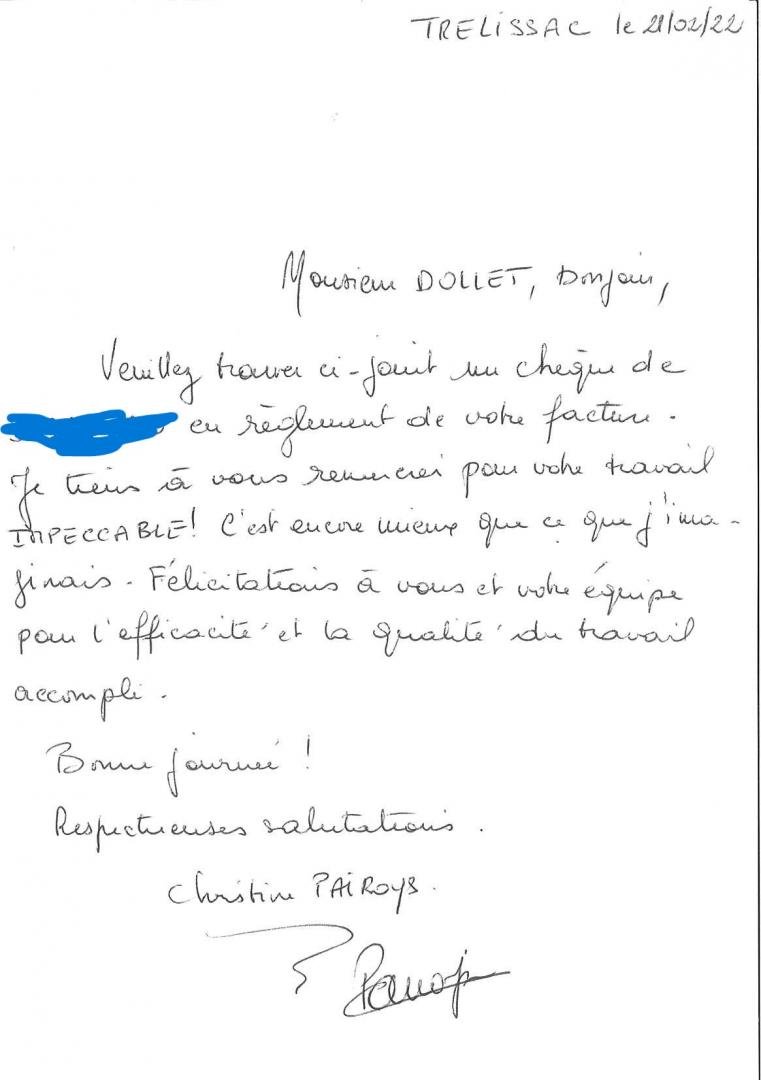 TRELISSAC le 21/02/22
Monsieur DOLLET, Bonjour,
Veuillez trouver ci-joint un chèque de
en règlement de votre facture.
Je tiens à vous remercier pour votre travail
IMPECCABLE! C'est encore mieux que ce que j'ima-
ginais. Félicitations à vous et votre équipe
pour l'efficacité et la qualité du travail
accompli.
Bonne journée !
Respectueuses salutations.
Christine PAIROYS.